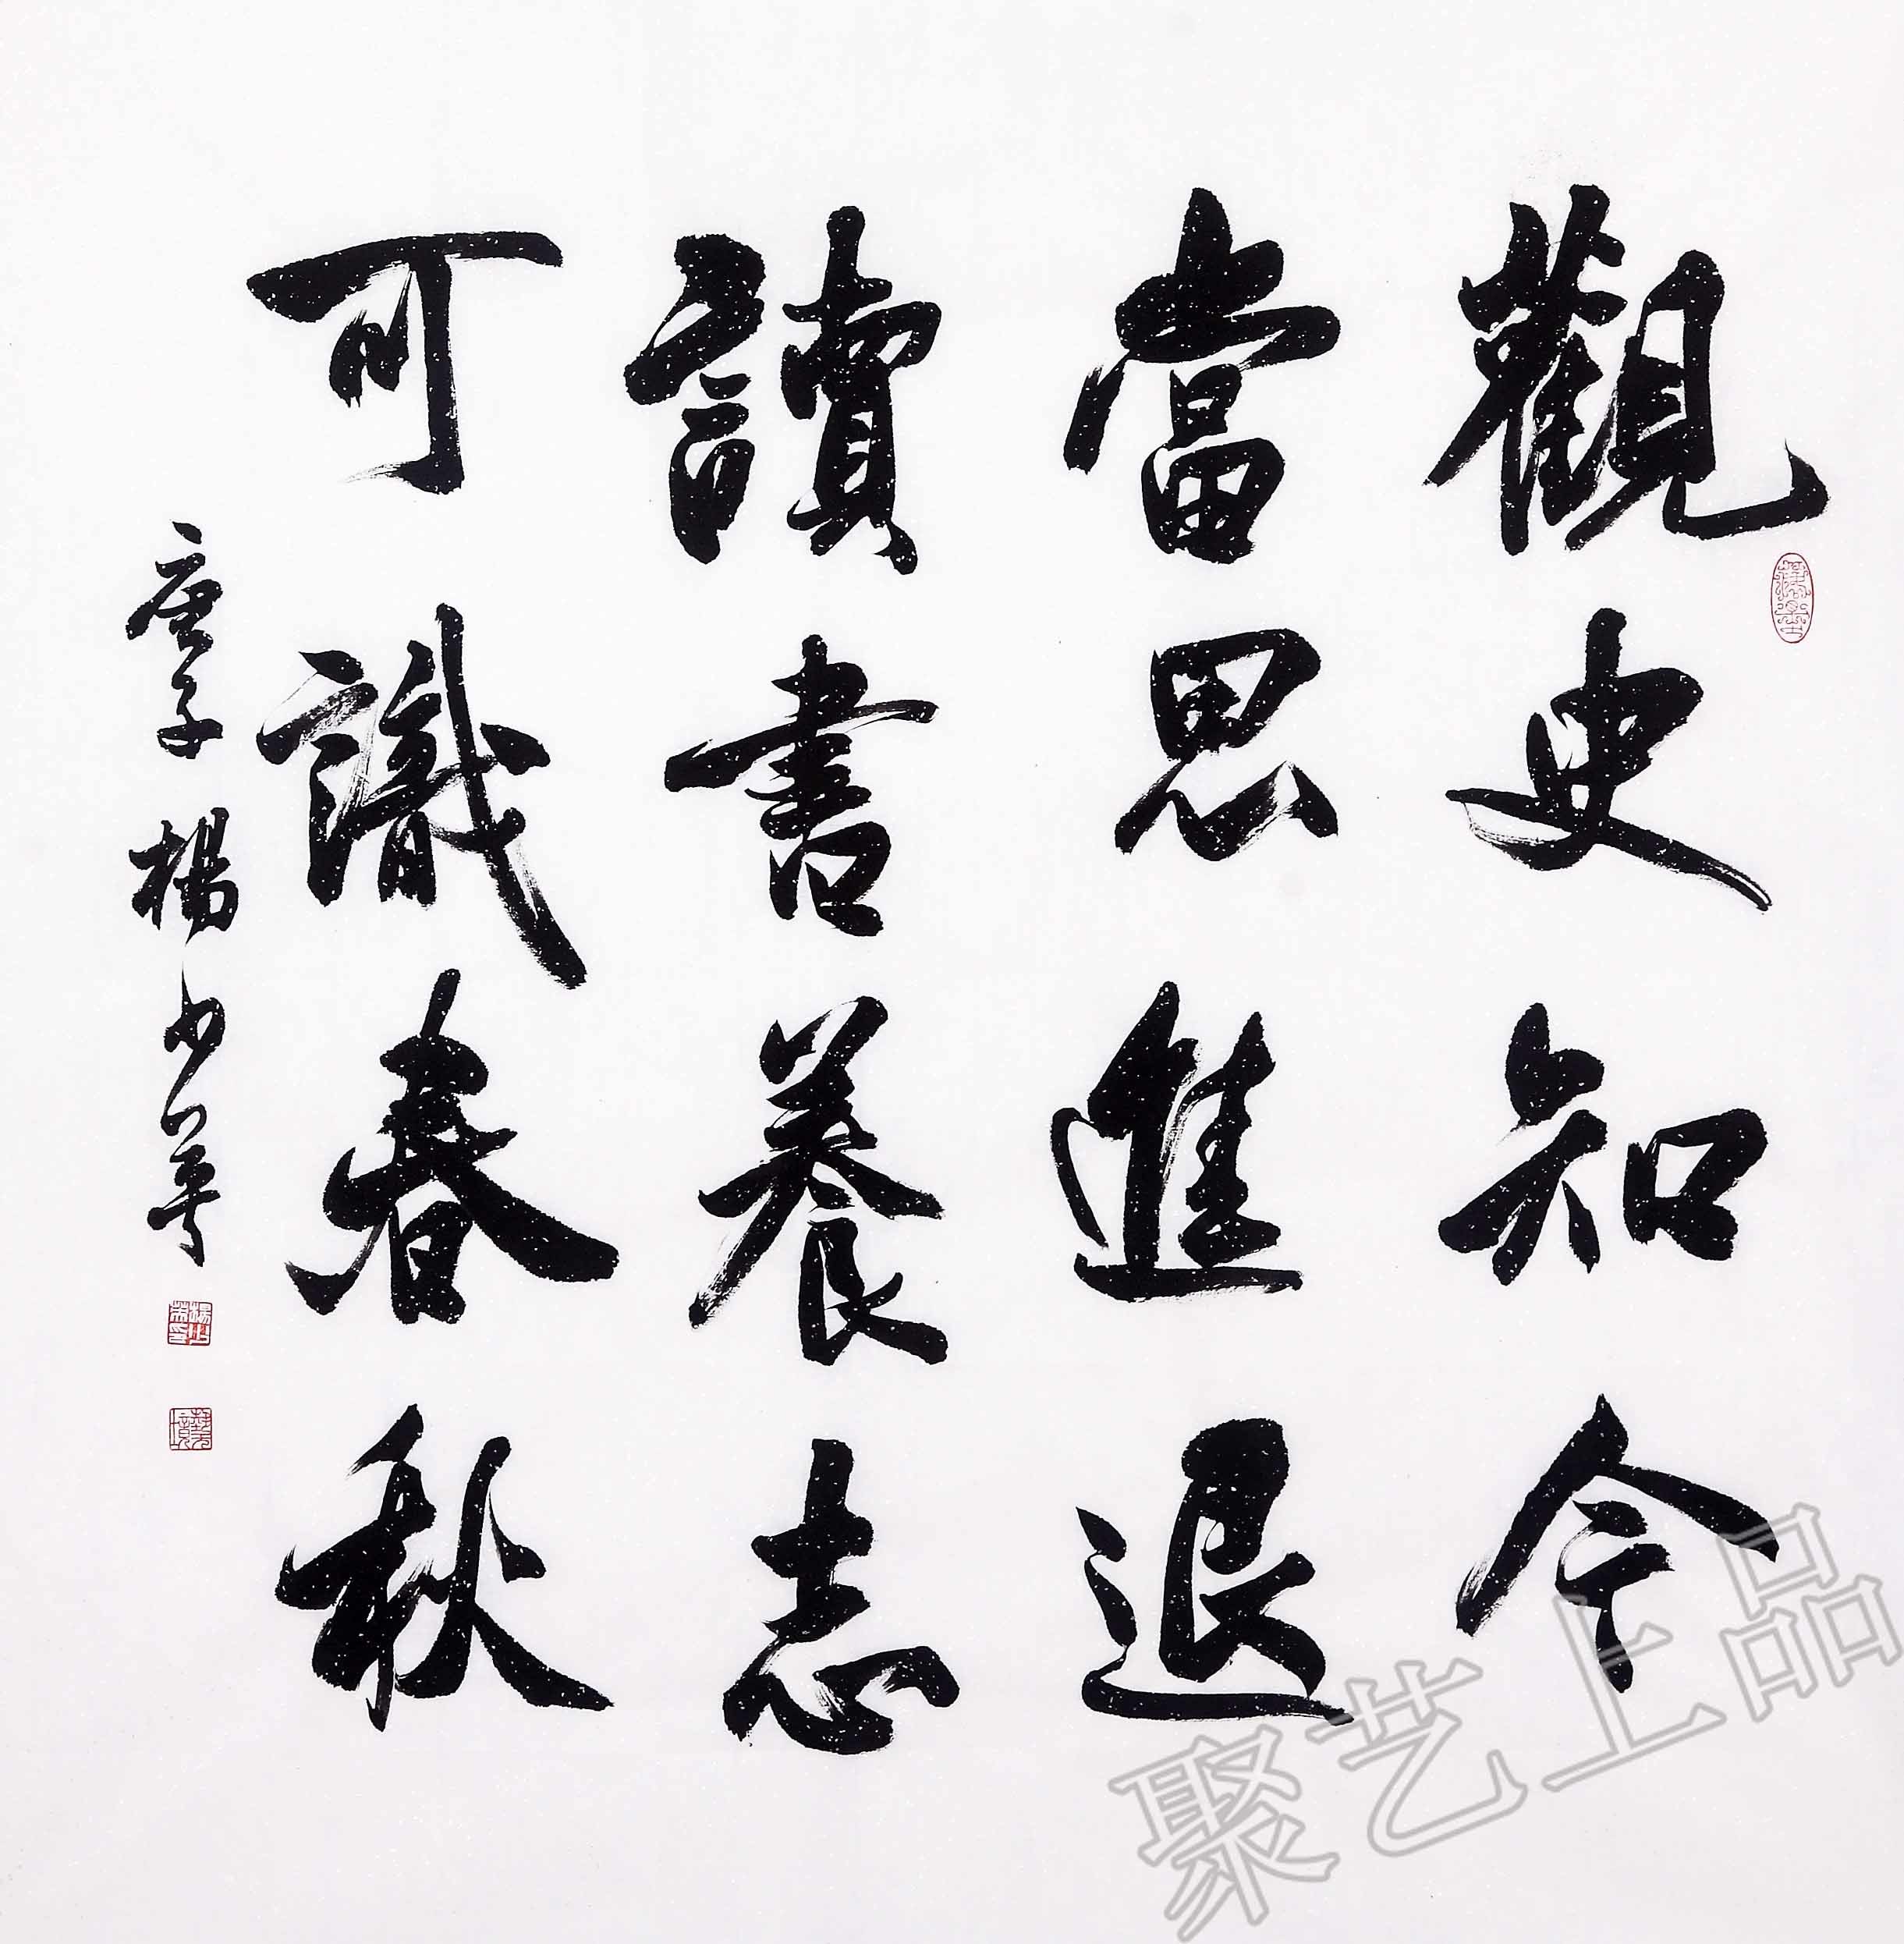 觀史知今
當思進退
讀書養志
可識春秋
庚子 楊少華
聚艺上品